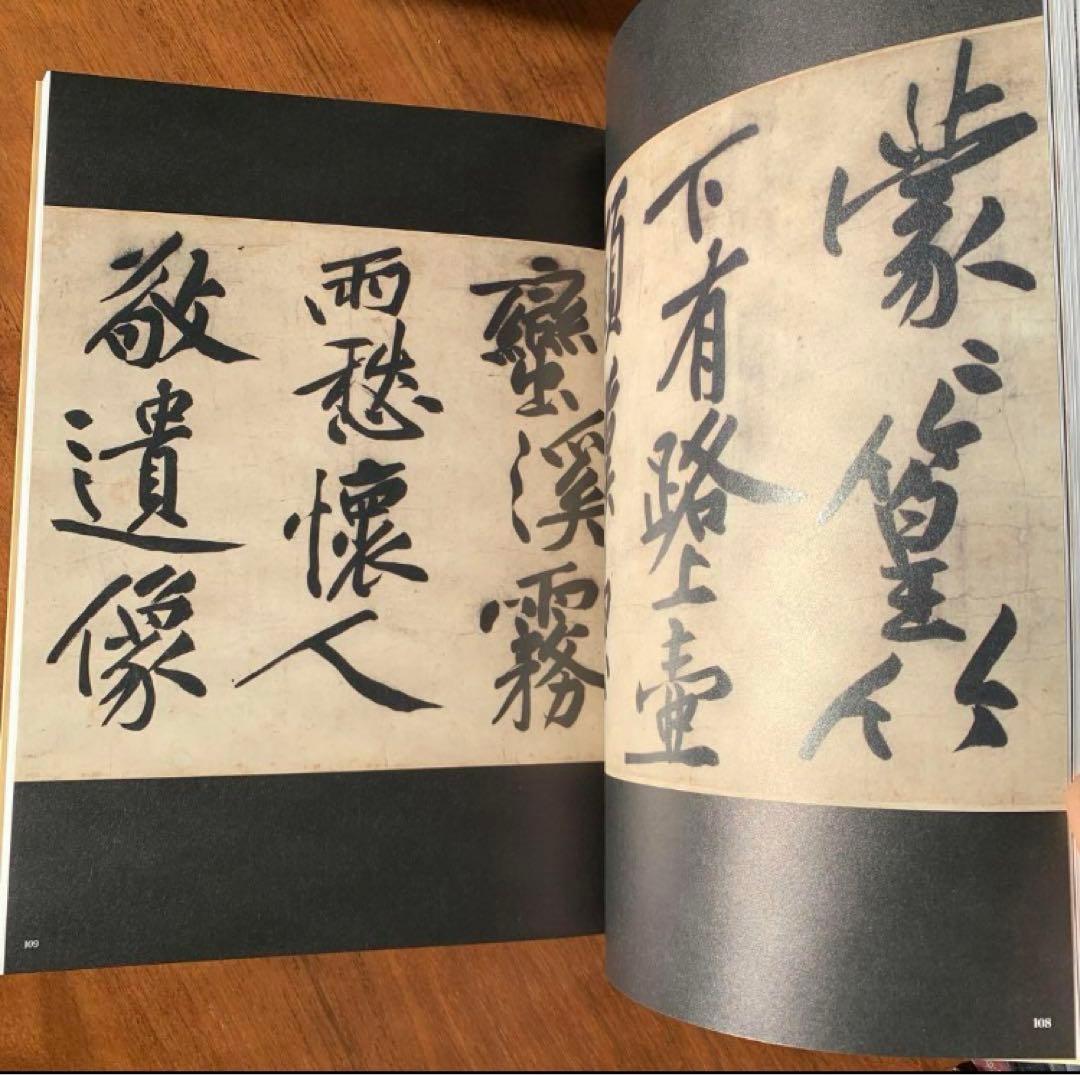 蒙〻篁竹
下有路上壺
蠻溪霧
雨愁懷人
敬遺像
108
109